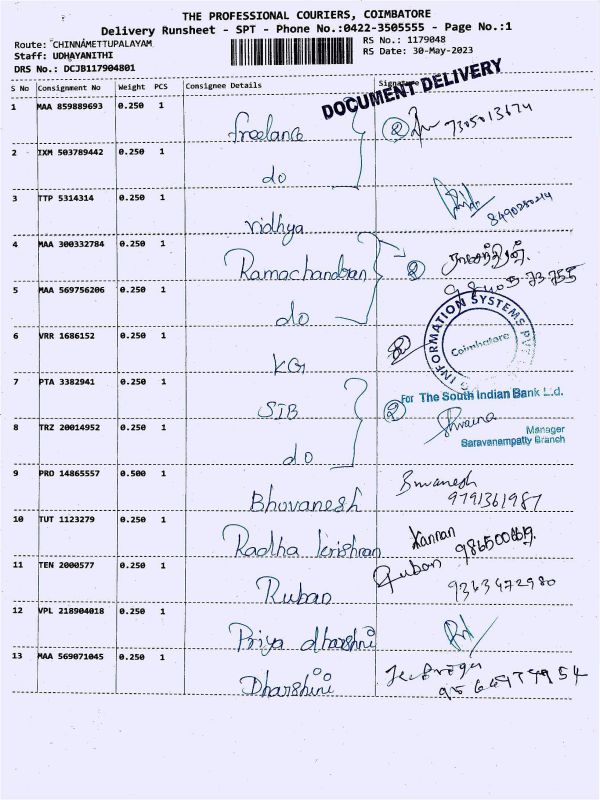 THE PROFESSIONAL COURIERS, COIMBATORE
Delivery Runsheet - SPT - Phone No.:0422-3505555 - Page No.:1
Route: CHINNAMETTUPALAYAM
RS No.: 1179048
Staff: UDHAYANITHI
RS Date: 30-May-2023
DRS No.: DCJB117904801
S No Consignment No Weight PCS Consignee Details Signature
DOCUMENT DELIVERY
1 MAA 859889693 0.250 1 freelance 2 7305013674
2 IXM 503789442 0.250 1 do
3 TTP 5314314 0.250 1 vidhya
4 MAA 300332784 0.250 1 Ramachandran 2 ராமச்சந்திரன்.
5 MAA 569756206 0.250 1 do
INFORMATION SYSTEMS PVT
Coimbatore
6 VRR 1686152 0.250 1 KG
7 PTA 3382941 0.250 1 SIB 2 For The South Indian Bank Ltd.
8 TRZ 20014952 0.250 1 do
Manager
Saravanampatty Branch
9 PRO 14865557 0.500 1 Bhuvanesh Buvanesh
9791361987
10 TUT 1123279 0.250 1 Radha krishnan Kannan
11 TEN 2000577 0.250 1 Ruban Ruban
9363472980
12 VPL 218904018 0.250 1 Priya dharshni
13 MAA 569071045 0.250 1 Dharshini